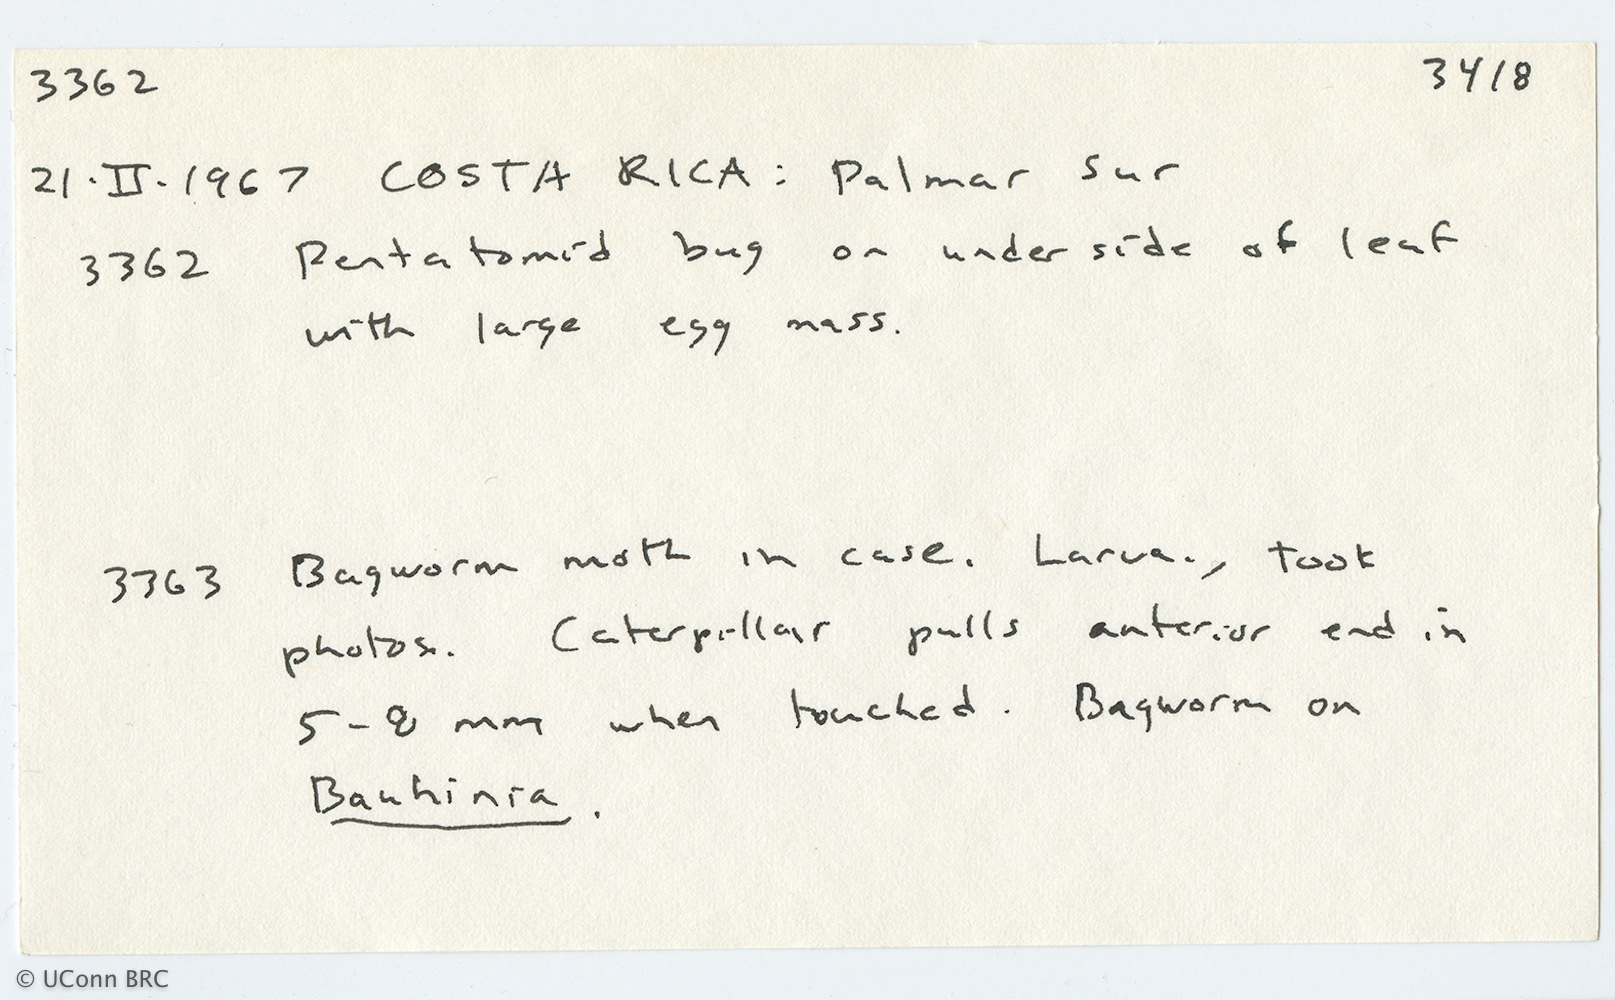 3362 3418
21·II·1967 COSTA RICA: Palmar Sur
3362 Pentatomid bug on underside of leaf
with large egg mass.
3363 Bagworm moth in case. Larva., took
photos. Caterpillar pulls anterior end in
5-8 mm when touched. Bagworm on
Bauhinia.
© UConn BRC